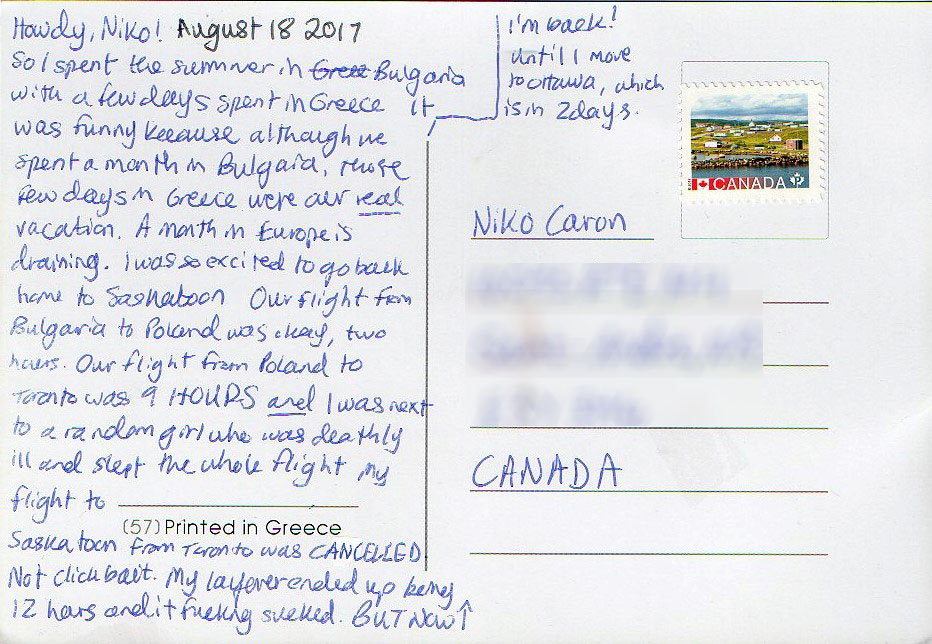 Howdy, Niko! August 18 2017
So I spent the summer in Greece Bulgaria
with a few days spent in Greece It
was funny because although we
spent a month in Bulgaria, those
few days in Greece were our real
vacation. A month in Europe is
draining. I was so excited to go back
home to Saskatoon Our flight from
Bulgaria to Poland was okay, two
hours. Our flight from Poland to
Toronto was 9 HOURS and I was next
to a random girl who was deathly
ill and slept the whole flight My
flight to
(57) Printed in Greece
Saskatoon from Toronto was CANCELLED
Not clickbait. My layover ended up being
12 hours and it fucking sucked. BUT NOW↑
I'm back!
Until I move
to Ottawa, which
is in 2 days.
CANADA P
Niko Caron
CANADA